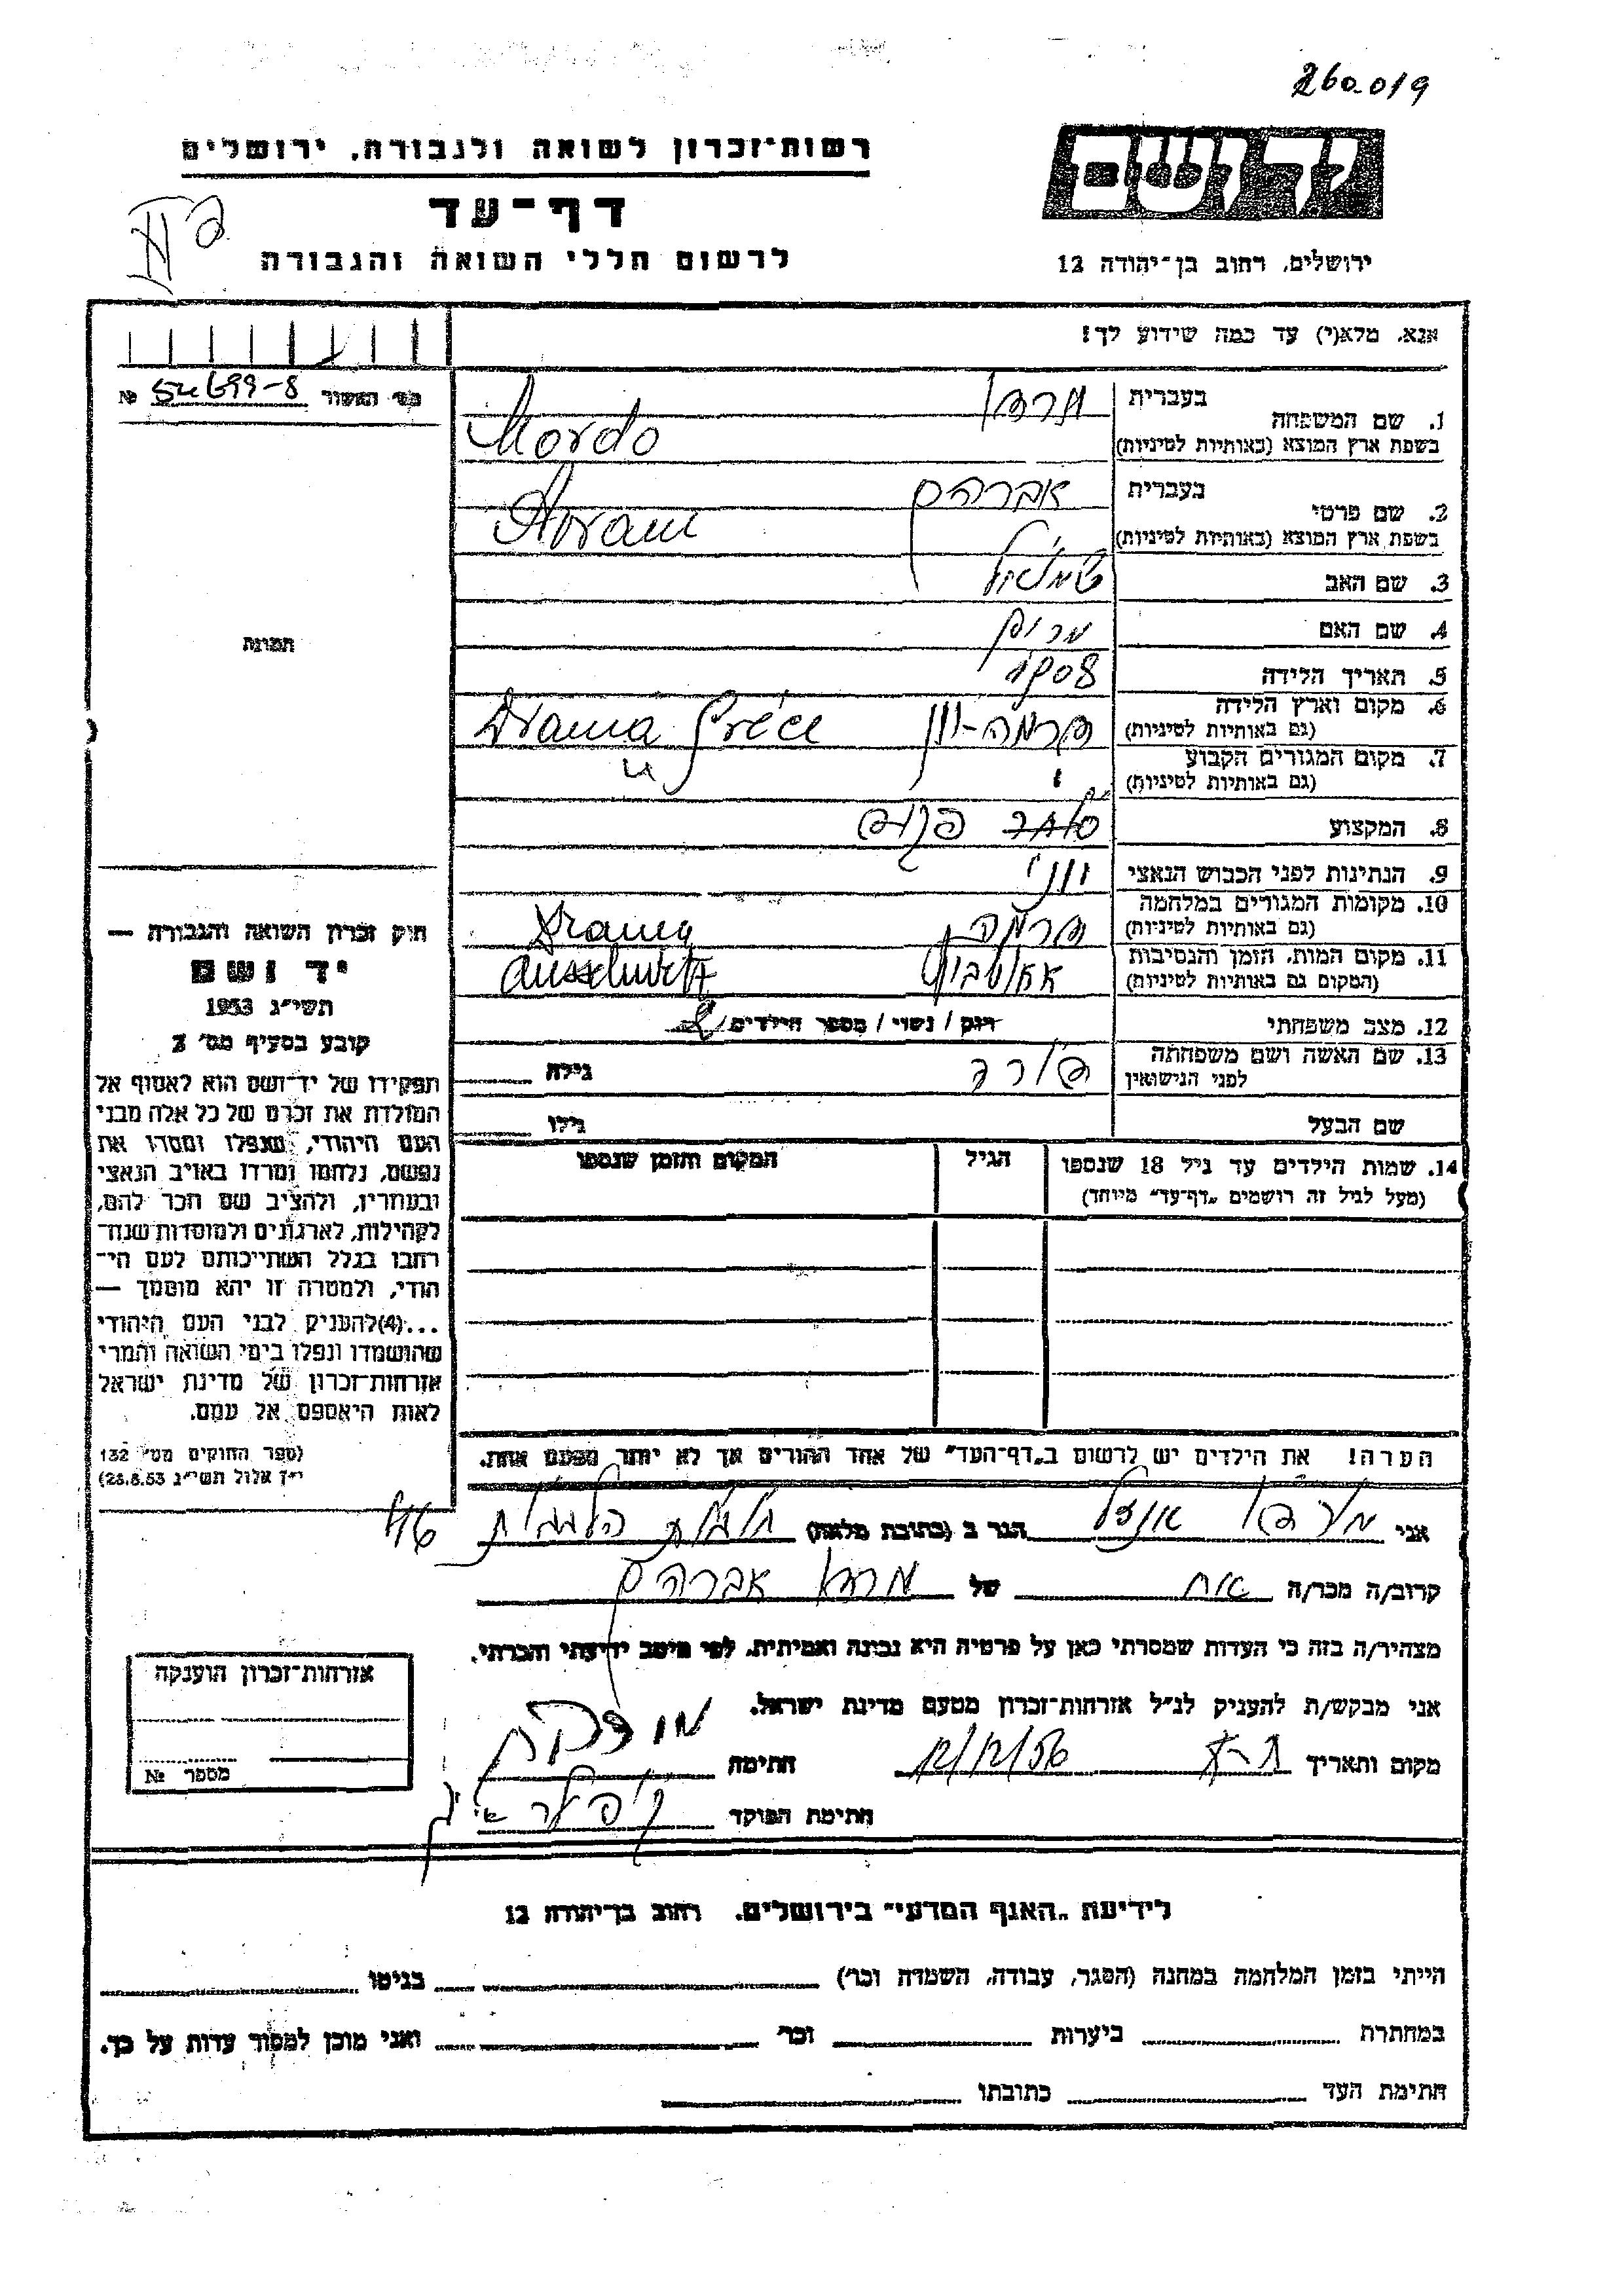 260.019
רשות־זכרון לשואה ולגבורה. ירושלים
דף־עד
לרשום חללי השואה והגבורה
יד ושם
ירושלים, רחוב בן־יהודה 12
אנא, מלא(י) עד כמה שידוע לך!
מס' האשור
№
1. שם המשפחה
בעברית
מרדו
בשפת ארץ המוצא (באותיות לטיניות)
Mordo
2. שם פרטי
בעברית
אברהם
בשפת ארץ המוצא (באותיות לטיניות)
Avram
3. שם האב
שמואל
4. שם האם
מרים
5. תאריך הלידה
6. מקום וארץ הלידה
(גם באותיות לטיניות)
דרמה-יון
Drama Grèce
7. מקום המגורים הקבוע
(גם באותיות לטיניות)
"
8. המקצוע
9. הנתינות לפני הכבוש הנאצי
יוני
10. מקומות המגורים במלחמה
(גם באותיות לטיניות)
דרמה
Drama
11. מקום המות, הזמן והנסיבות
(המקום גם באותיות לטיניות)
12. מצב משפחתי
רוק / נשוי / מספר הילדים
13. שם האשה ושם משפחתה
לפני הנישואין
גילה
שם הבעל
גילו
14. שמות הילדים עד גיל 18 שנספו
(מעל לגיל זה רושמים „דף־עד" מיוחד)
הגיל
המקום והזמן שנספו
הערה! את הילדים יש לרשום ב„דף־העד" של אחד ההורים אך לא יותר מפעם אחת.
תמונה
חוק זכרון השואה והגבורה —
יד ושם
תשי"ג 1953
קובע בסעיף מס' 2
תפקידו של יד־ושם הוא לאסוף אל
המולדת את זכרם של כל אלה מבני
העם היהודי, שנפלו ומסרו את
נפשם, נלחמו ומרדו באויב הנאצי
ובעוזריו, ולהציב שם וזכר להם,
לקהילות, לארגונים ולמוסדות שנח־
רבו בגלל השתייכותם לעם הי־
הודי, ולמטרה זו יהא מוסמך —
...(4)להעניק לבני העם היהודי
שהושמדו ונפלו בימי השואה והמרי
אזרחות־זכרון של מדינת ישראל
לאות היאספם אל עמם.
(ספר החוקים מס' 132
י"ז אלול תשי"ג 28.8.53)
אני
הגר ב (כתובת מלאה)
קרוב/ה מכר/ה אח של מרדו אברהם
מצהיר/ה בזה כי העדות שמסרתי כאן על פרטיה היא נכונה ואמיתית, לפי מיטב ידיעתי והכרתי.
אני מבקש/ת להעניק לנ"ל אזרחות־זכרון מטעם מדינת ישראל.
מקום ותאריך ת-א 12/12/56 חתימה
חתימת הפוקד
אזרחות־זכרון הוענקה
מספר №
לידיעת „האגף המדעי" בירושלים, רחוב בן־יהודה 12
הייתי בזמן המלחמה במחנה (הסגר, עבודה, השמדה וכו') בגיטו
במחתרת ביערות וכו' ואני מוכן למסור עדות על כך.
חתימת העד כתובתו